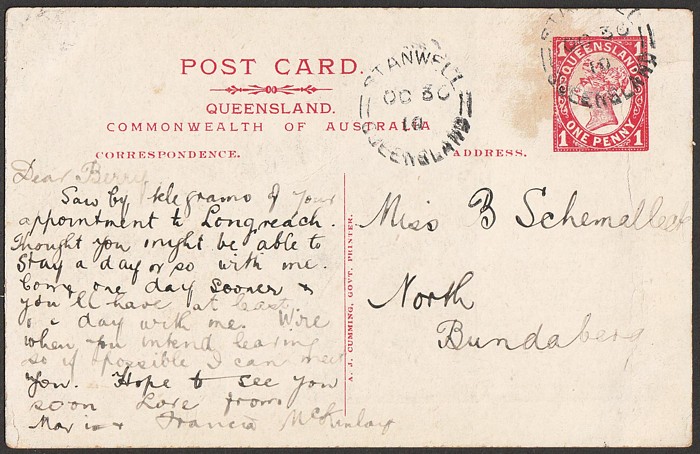 POST CARD.
QUEENSLAND.
COMMONWEALTH OF AUSTRALIA
CORRESPONDENCE.
ADDRESS.
STANWELL
OC 30
10
QUEENSLAND
STANWELL
OC 30
10
QUEENSLAND
QUEENSLAND
1 ONE PENNY 1
Dear Berry
Saw by telegrams of your
appointment to Longreach.
Thought you might be able to
stay a day or so with me.
Come one day sooner &
you'll have at least
a day with me. Wire
when you intend leaving
so if possible I can meet
you. Hope to see you
soon Love from
Francis McKinlay
A. J. CUMMING, GOVT. PRINTER.
Miss B
North
Bundaberg